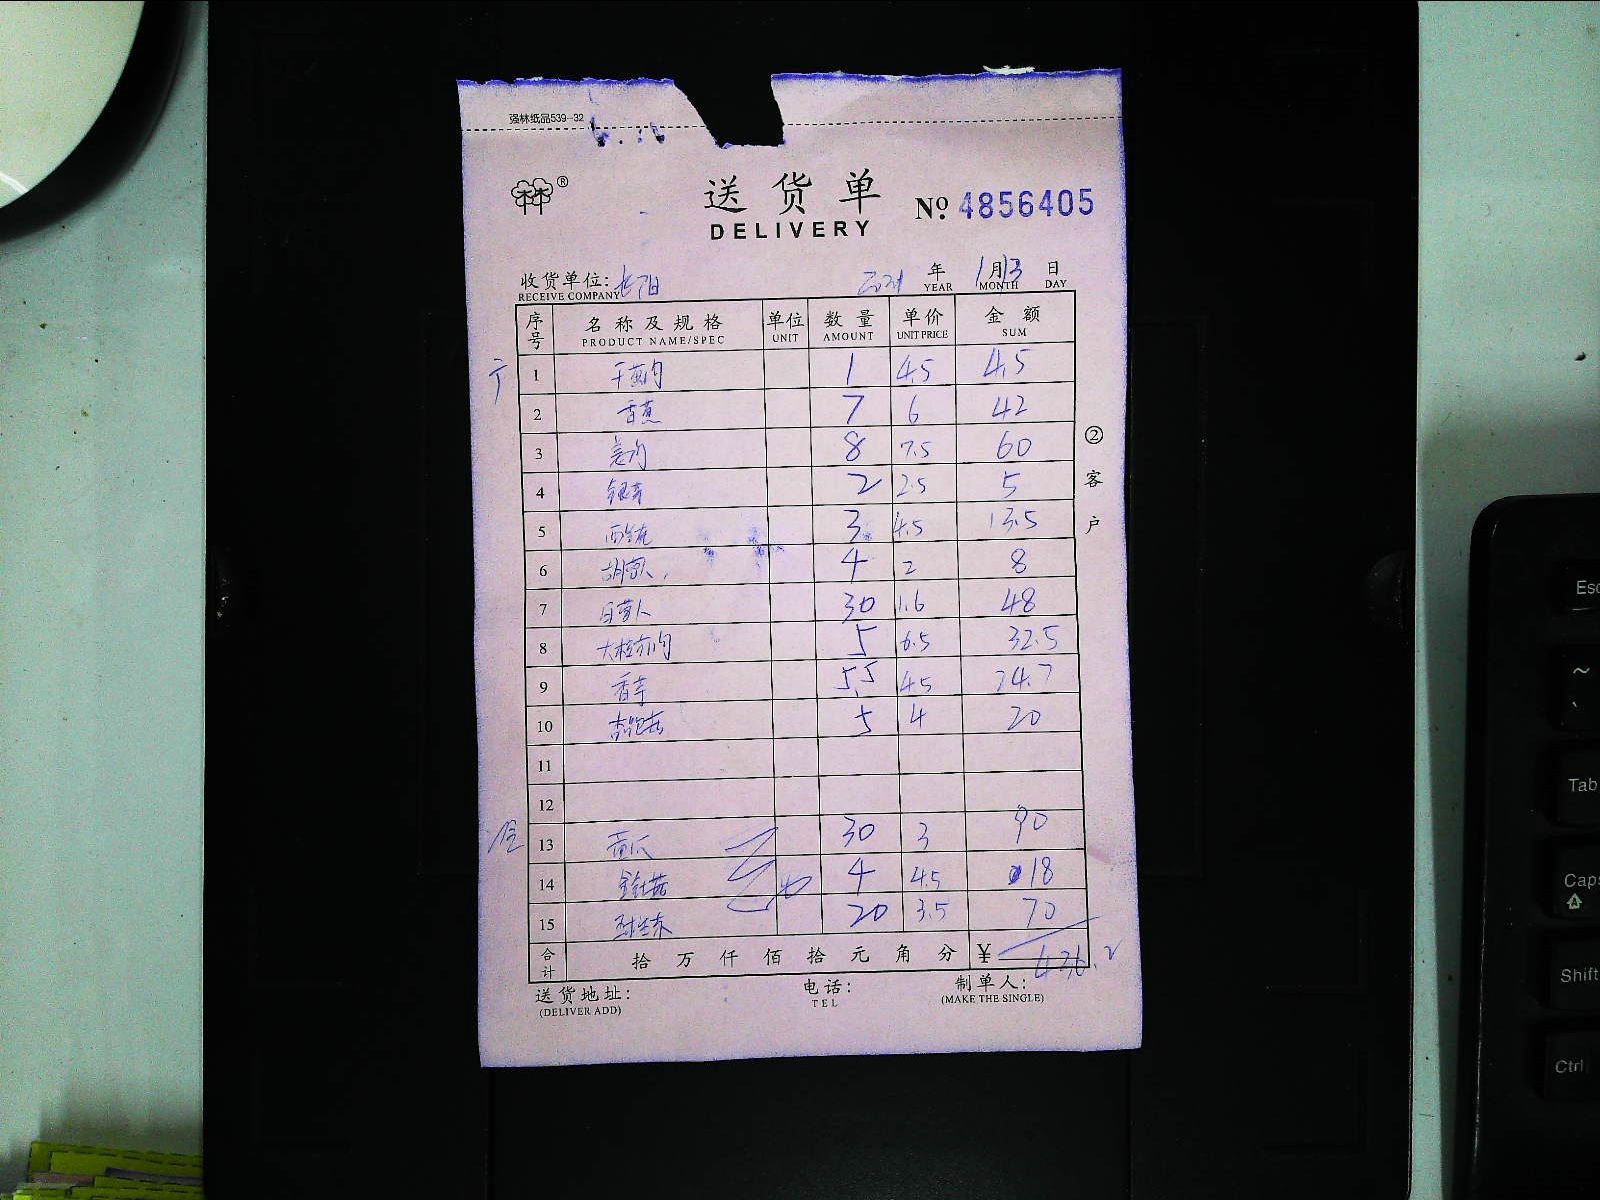 强林纸品539-32
送货单
DELIVERY
Nº 4856405
收货单位:
RECEIVE COMPANY
2021 年 1月13 日
YEAR MONTH DAY
序号 名称及规格 单位 数量 单价 金额
PRODUCT NAME/SPEC UNIT AMOUNT UNIT PRICE SUM
1 1 4.5 4.5
2 香蕉 7 6 42
3 姜肉 8 7.5 60
4 银芽 2 2.5 5
5 3 4.5 13.5
6 4 2 8
7 30 1.6 48
8 5 6.5 32.5
9 香芋 5.5 4.5 24.7
10 5 4 20
11
12
13 黄瓜 30 3 90
14 金针菇 4 4.5 18
15 20 3.5 70
合计 拾万仟佰拾元角分 ¥ 436.2
送货地址: 电话: 制单人:
(DELIVER ADD) TEL (MAKE THE SINGLE)
②客户
Esc
~
`
Tab
Caps
Shift
Ctrl